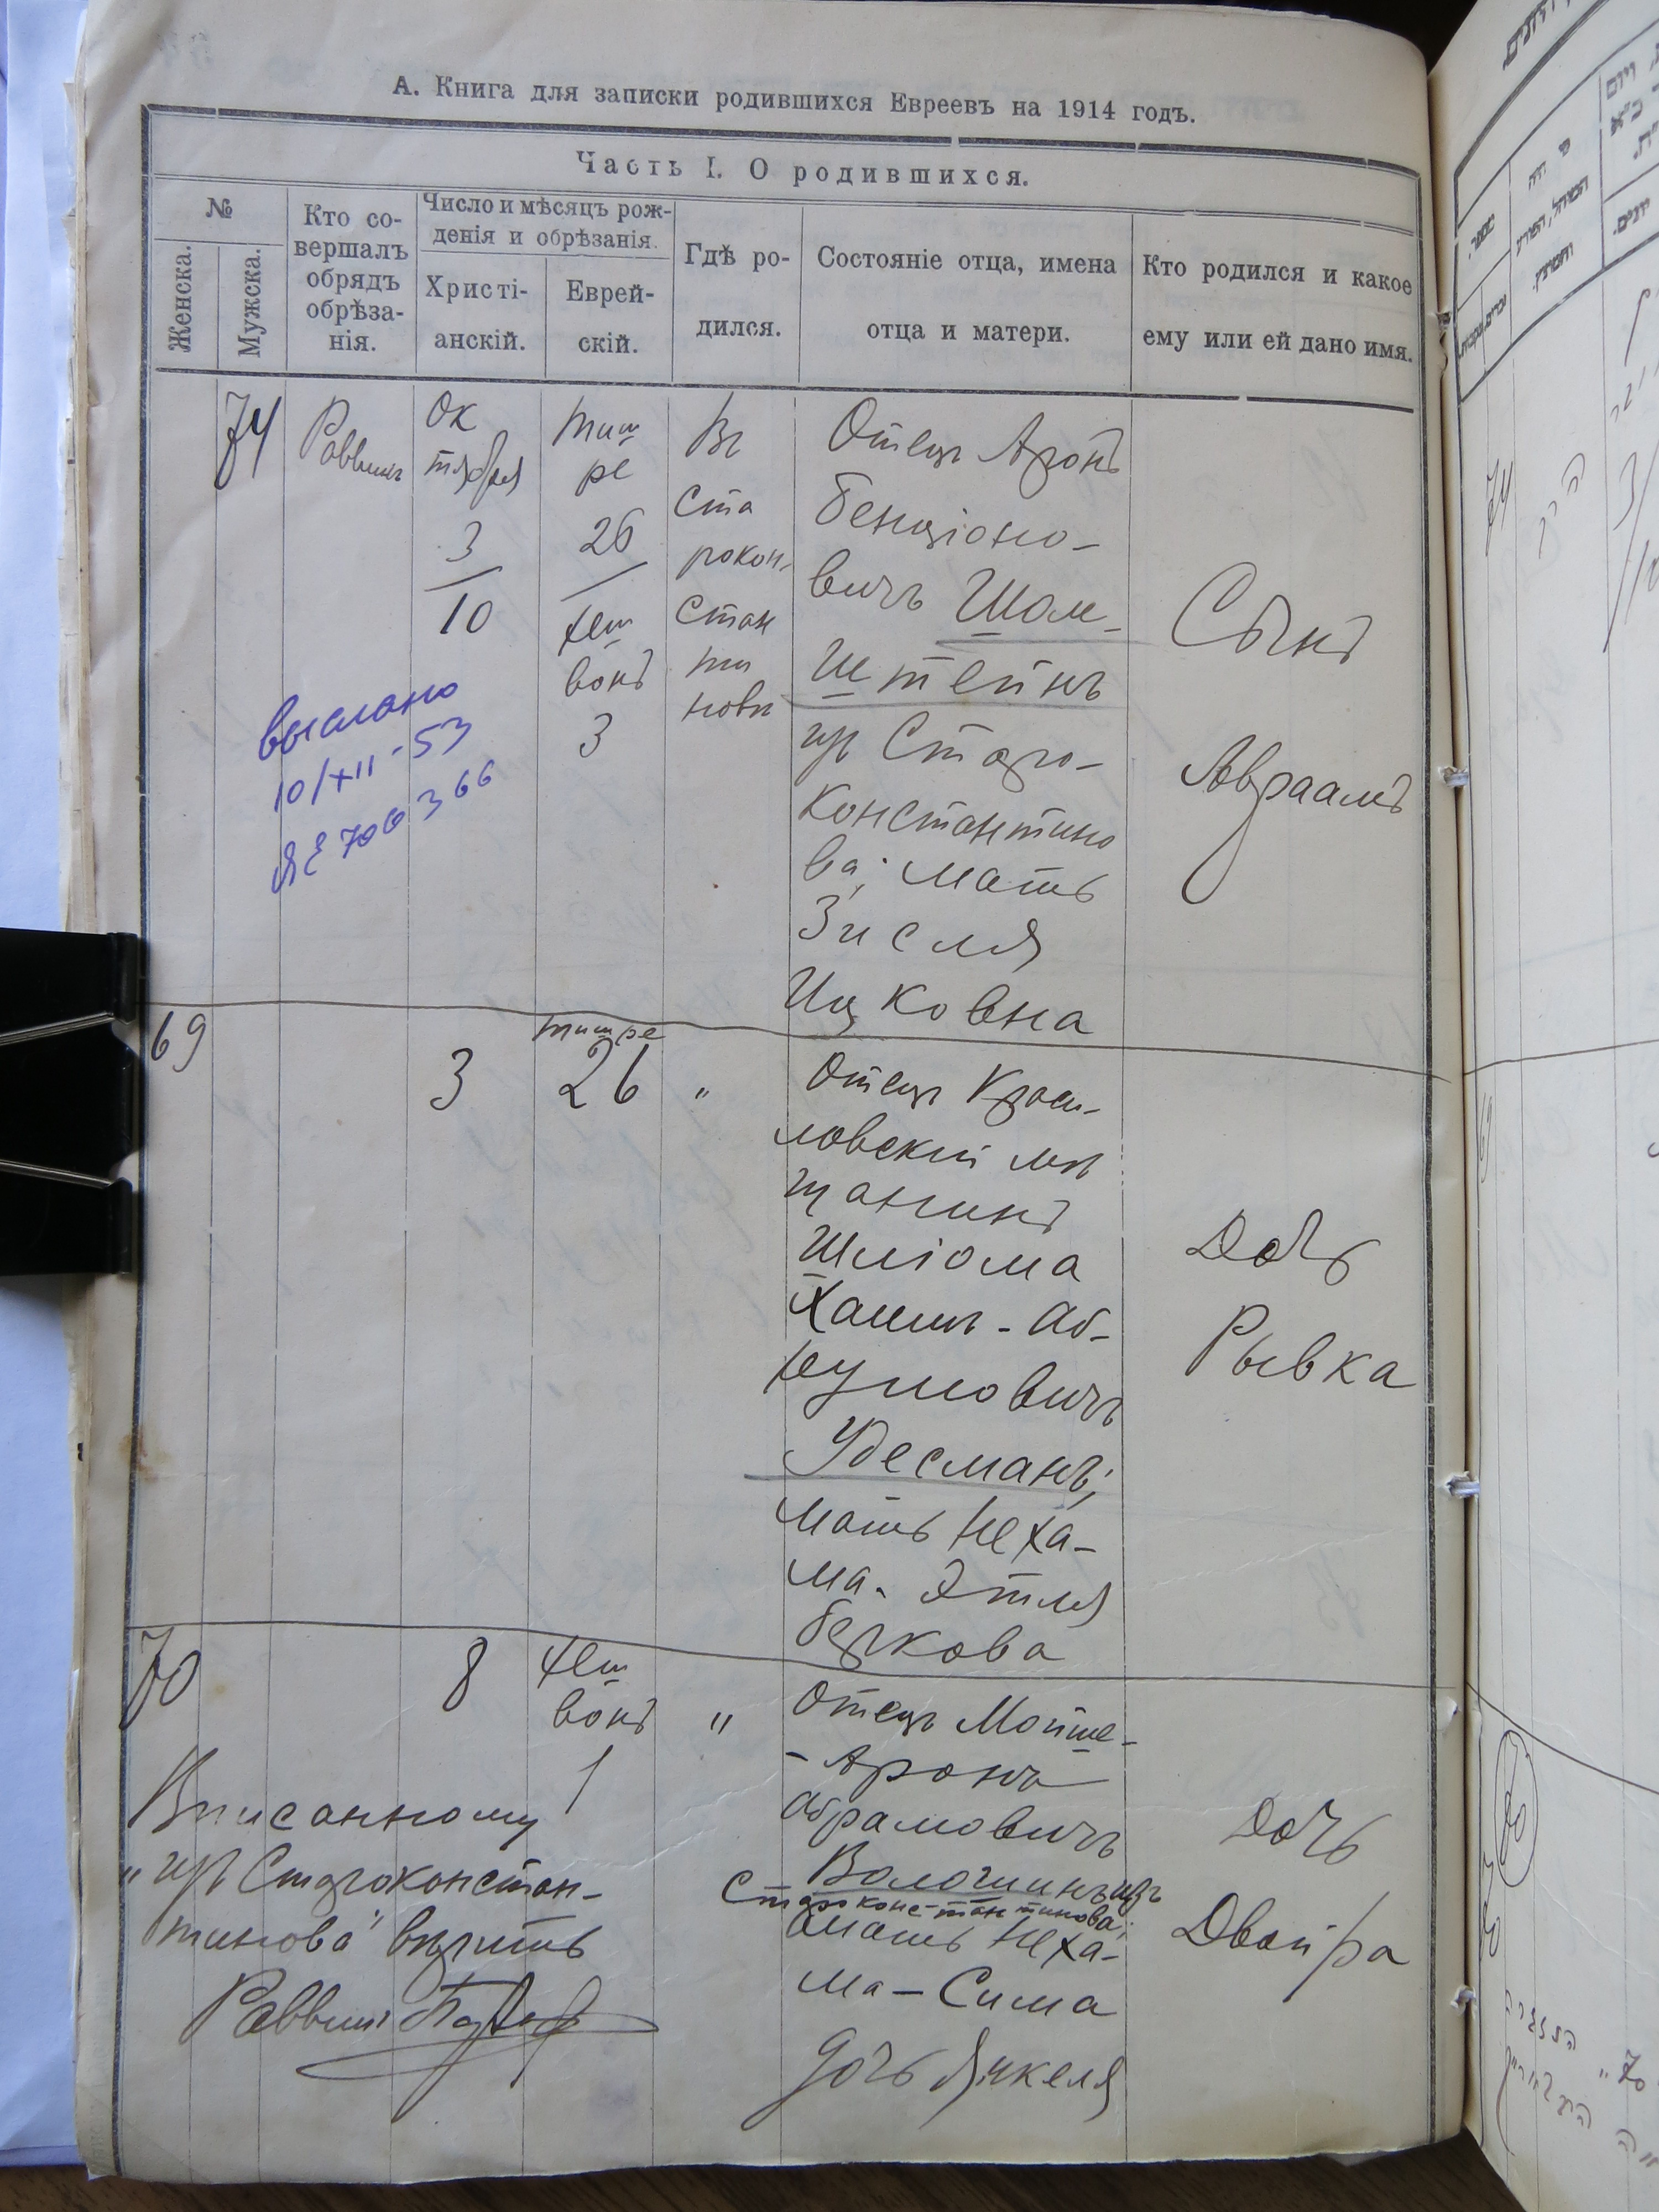 А. Книга для записки родившихся Евреевъ на 1914 годъ.
Часть I. О родившихся.
№
Женска.
Мужска.
Кто со-
вершалъ
обрядъ
обрѣза-
нія.
Число и мѣсяцъ рож-
денія и обрѣзанія.
Христі-
анскій.
Еврей-
скій.
Гдѣ ро-
дился.
Состояніе отца, имена
отца и матери.
Кто родился и какое
ему или ей дано имя.
74
Раввинъ
Ок
тября
3
10
Тиш
ре
26
Хеш
вонъ
3
Въ
Ста
рокон,
стан
ти
новѣ
Отецъ Аронъ
Бенціоно-
вичъ Шом-
штейнъ
изъ Старо-
константино
ва; мать
Зисля
Ицковна
Сынъ
Авраамъ
выслано
10/XII-53
ЯЕ 706366
69
3
тишре
26
"
Отецъ Краси-
ловскій мѣ
щанинъ
Шліома
Хаимъ-Аб-
Нухимовичъ
Удесманъ;
мать Неха-
ма-Этля
Беркова
Дочь
Рывка
70
8
Хеш
вонъ
1
"
Отецъ Мойше-
-Аронъ
Абрамовичъ
Волочинъ изъ
Староконстантинова;
мать Неха-
ма-Сима
дочь Янкеля
Дочь
Двойра
Вписанному
"изъ Староконстан-
тинова" вѣрить
Раввинъ
74